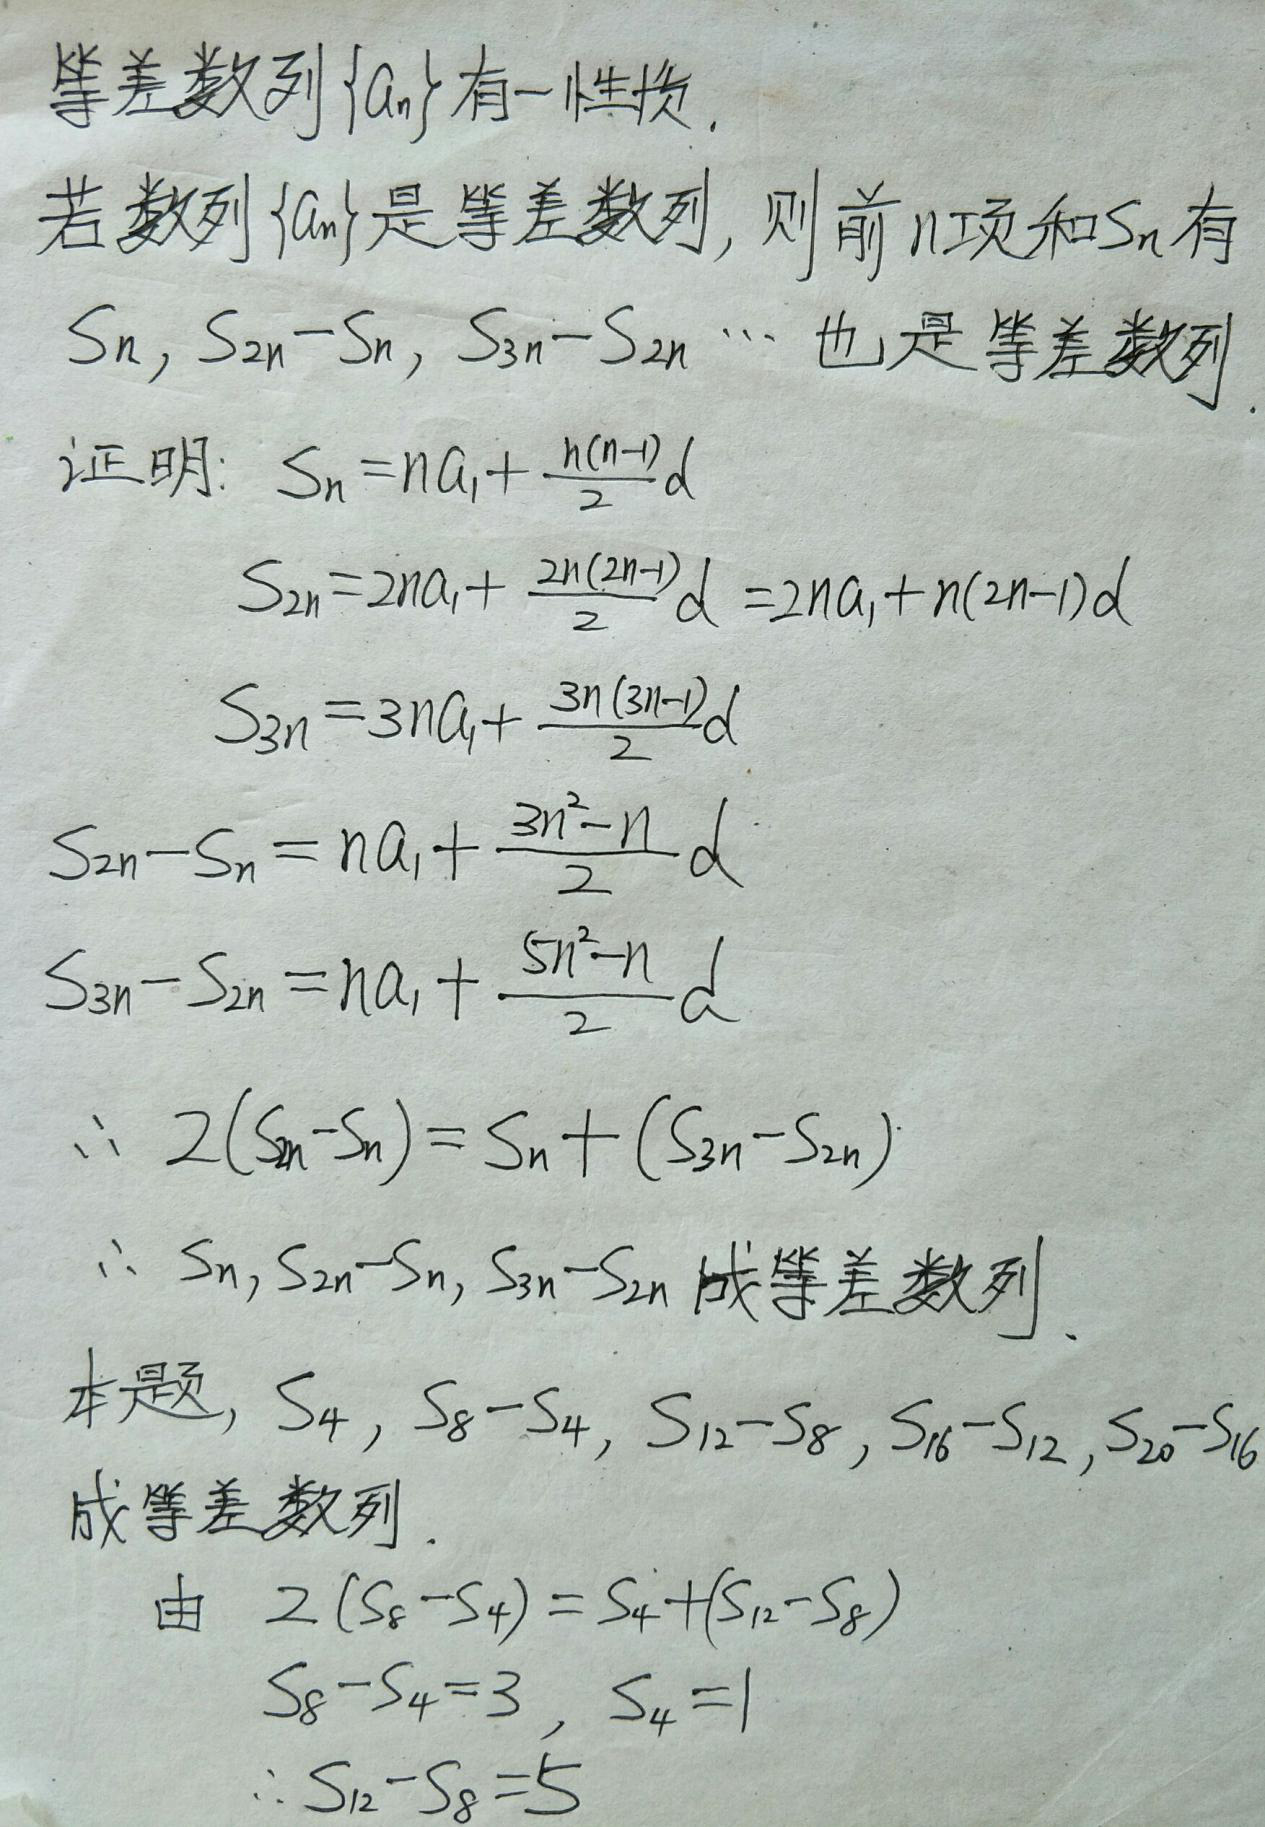 等差数列{aₙ}有一性质.
若数列{aₙ}是等差数列,则前n项和Sₙ有
Sₙ, S₂ₙ-Sₙ, S₃ₙ-S₂ₙ … 也是等差数列.
证明: Sₙ=na₁+\frac{n(n-1)}{2}d
S₂ₙ=2na₁+\frac{2n(2n-1)}{2}d=2na₁+n(2n-1)d
S₃ₙ=3na₁+\frac{3n(3n-1)}{2}d
S₂ₙ-Sₙ=na₁+\frac{3n²-n}{2}d
S₃ₙ-S₂ₙ=na₁+\frac{5n²-n}{2}d
∴ 2(S₂ₙ-Sₙ)=Sₙ+(S₃ₙ-S₂ₙ)
∴ Sₙ, S₂ₙ-Sₙ, S₃ₙ-S₂ₙ 成等差数列.
本题, S₄, S₈-S₄, S₁₂-S₈, S₁₆-S₁₂, S₂₀-S₁₆
成等差数列.
由 2(S₈-S₄)=S₄+(S₁₂-S₈)
S₈-S₄=3, S₄=1
∴S₁₂-S₈=5